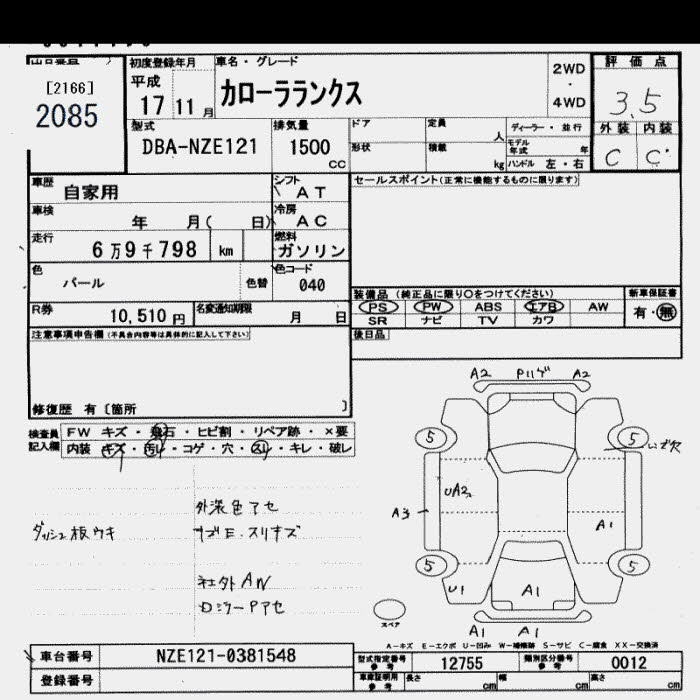 [2166]
2085
初度登録年月
平成
17 11 月
車名・グレード
カローラランクス
2WD
・
4WD
評価点
3.5
外装 内装
C C
型式
DBA-NZE121
排気量
1500
cc
ドア
定員
人
形状
積載
kg
ディーラー・並行
モデル年式 年
ハンドル 左・右
車歴
自家用
シフト
AT
セールスポイント(正常に機能するものに限ります)
車検
年 月( 日)
冷房
AC
走行
6万9千798 km
燃料
ガソリン
色
パール
色替
色コード
040
装備品(純正品に限り〇をつけてください)
新車保証書
PS PW ABS エアB AW
有・無
SR ナビ TV カワ
R券
10,510円
名変通知期限
月 日
後日品
注意事項申告欄(不具合内容等は具体的に記入して下さい)
修復歴 有〔箇所 〕
検査員記入欄
FW キズ・飛石・ヒビ割・リペア跡・×要
内装 キズ・汚レ・コゲ・穴・スレ・キレ・破レ
外装色アセ
ダッシュ板ウキ
社外AN
A2 A2
5 5
UA2
A3
A1
5 5
U1 A1
スペア
A1 A1
A-キズ E-エクボ U-凹み W-補修跡 S-サビ C-腐食 XX-交換済
車台番号
NZE121-0381548
型式指定番号
参考
12755
類別区分番号
参考
0012
登録番号
車庫証明用
参考
長さ cm
幅 cm
高さ cm